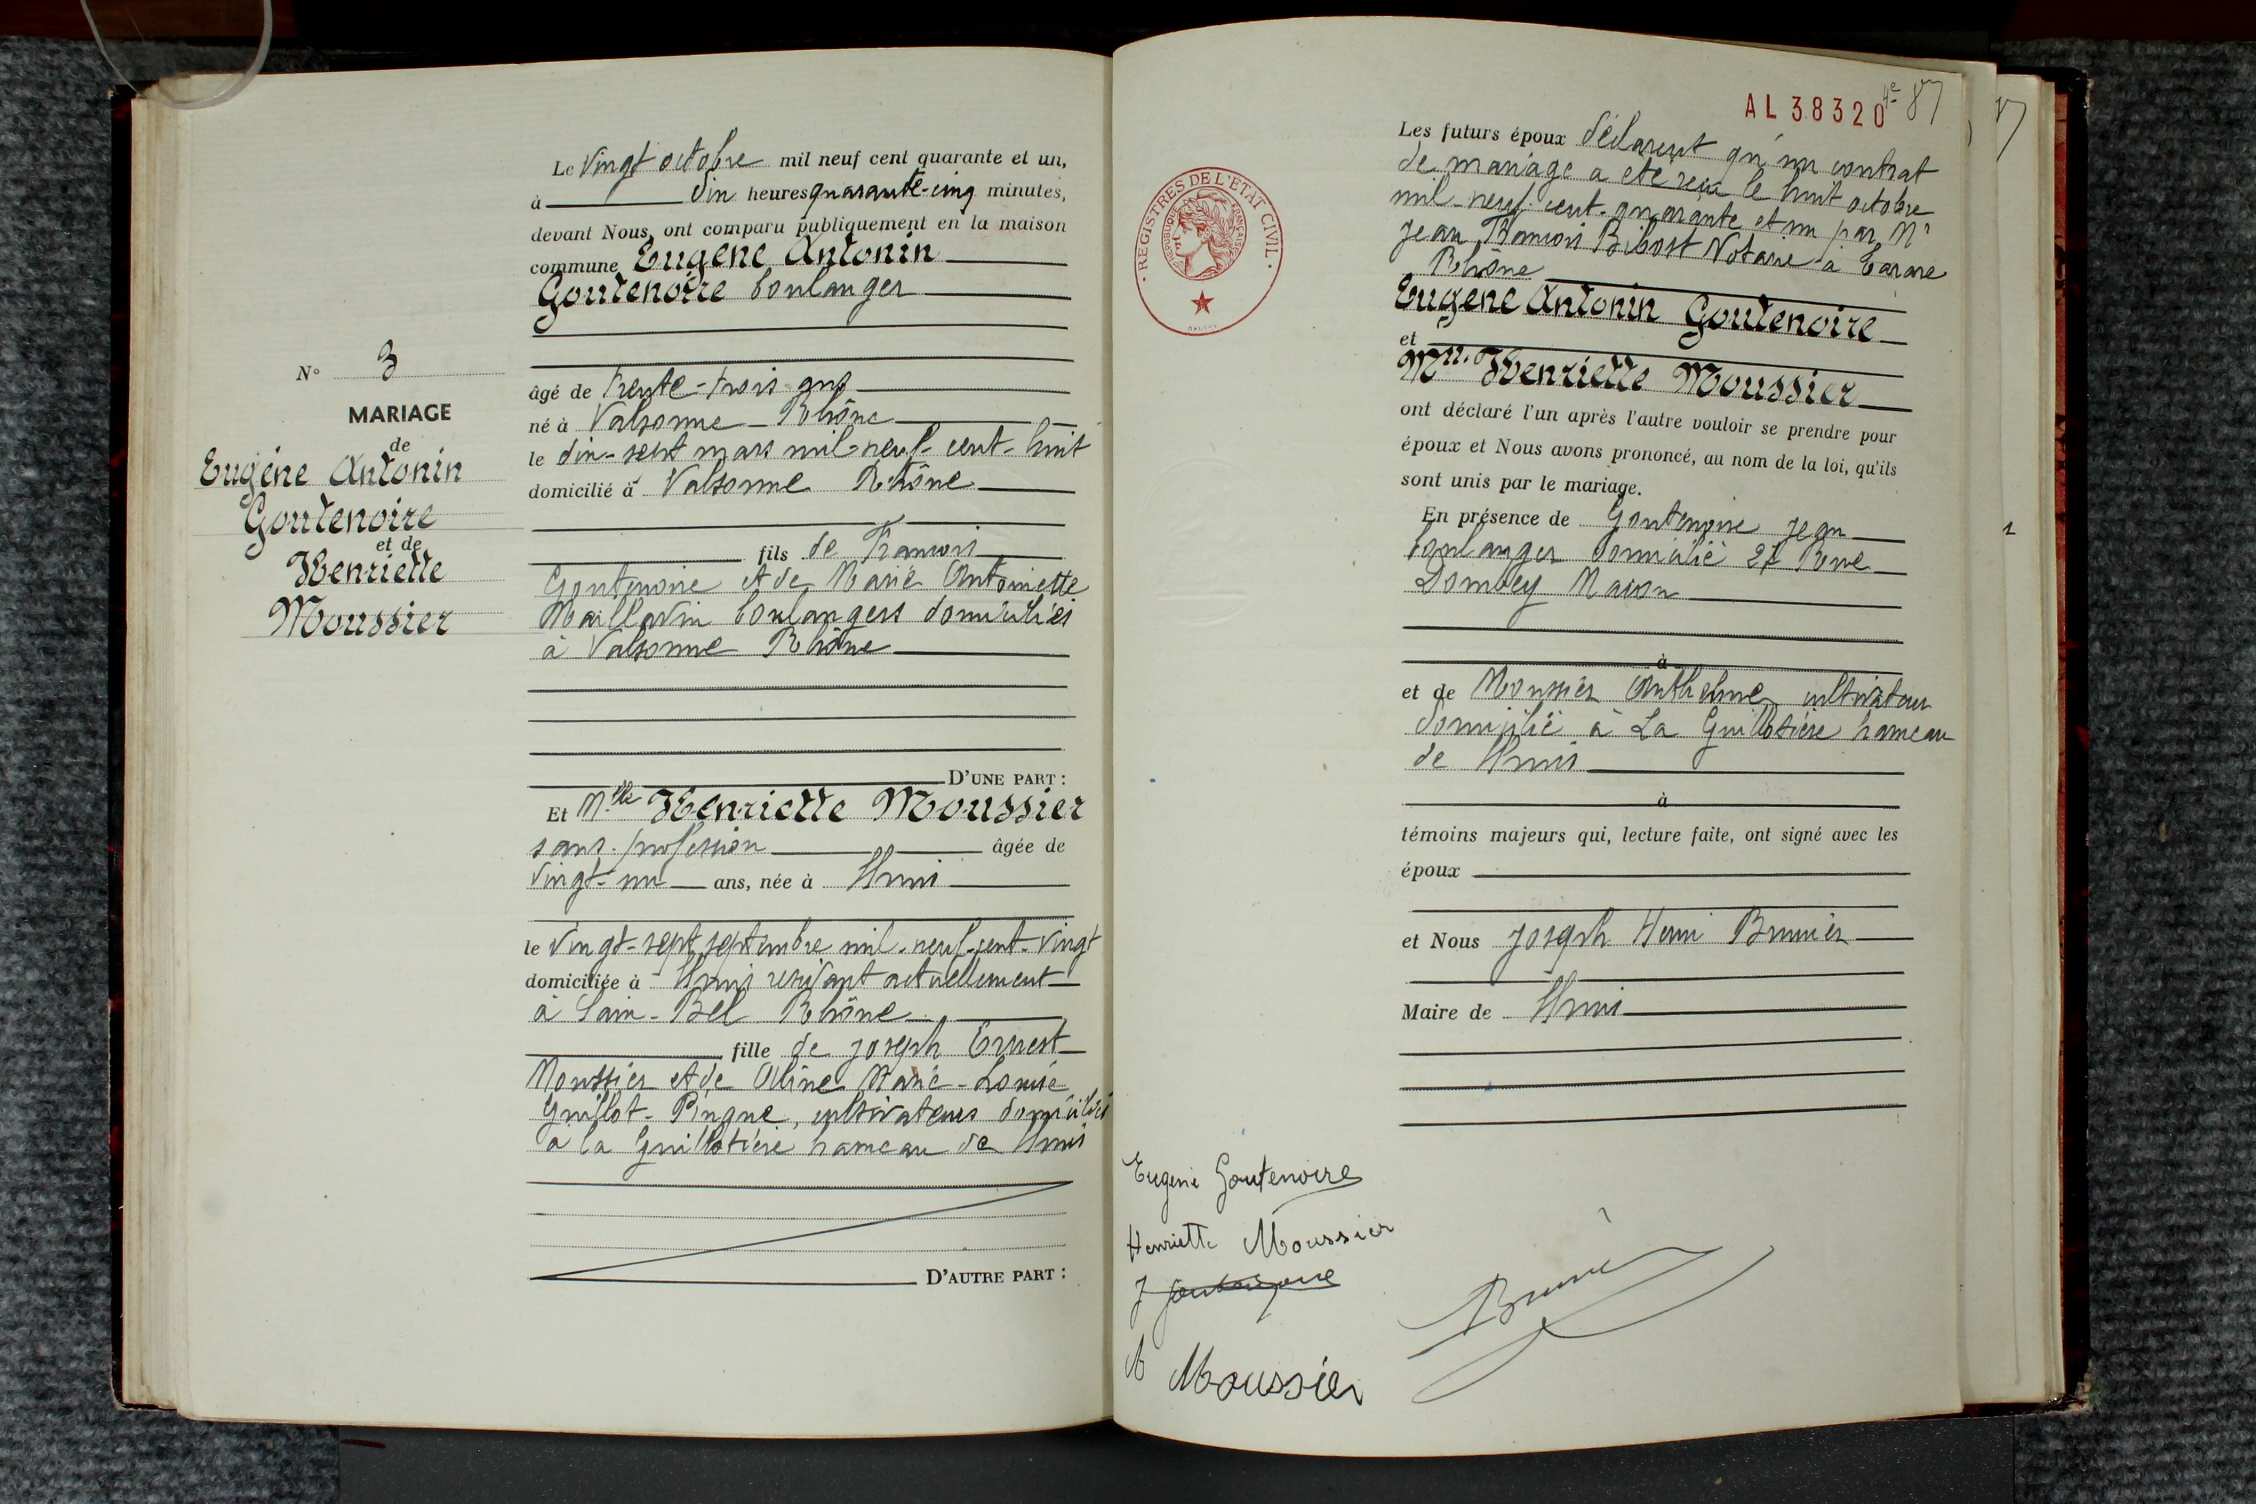 N° 3
MARIAGE
de
Eugène Antonin
Goutenoire
et de
Henriette
Moussier
Le vingt octobre mil neuf cent quarante et un,
à dix heures quarante-cinq minutes,
devant Nous, ont comparu publiquement en la maison
commune Eugène Antonin
Goutenoire boulanger
âgé de trente-trois ans
né à Valsonne Rhône
le dix-sept mars mil-neuf-cent-huit
domicilié à Valsonne Rhône
fils de François
Goutenoire et de Marie Antoinette
Maillavin boulangers domiciliés
à Valsonne Rhône
D'UNE PART :
Et Mlle Henriette Moussier
sans profession âgée de
vingt-un ans, née à
le vingt-sept septembre mil-neuf-cent-vingt
domiciliée à résidant actuellement
à Sain-Bel Rhône
fille de Joseph Ernest
Moussier et de Aline Marie-Louise
Guillot-Pingue, cultivateurs domiciliés
à la Guillotière hameau de
D'AUTRE PART :
AL 38320 4e 87
REGISTRES DE L'ÉTAT CIVIL
RÉPUBLIQUE FRANÇAISE
Les futurs époux déclarent qu'un contrat
de mariage a été reçu le huit octobre
mil-neuf-cent-quarante et un par Mr
Jean François Bibost Notaire à Tarare
Rhône
Eugène Antonin Goutenoire
et
Mlle Henriette Moussier
ont déclaré l'un après l'autre vouloir se prendre pour
époux et Nous avons prononcé, au nom de la loi, qu'ils
sont unis par le mariage.
En présence de Goutenoire Jean
boulanger domicilié 27 Rue
Dombey Macon
à
et de Moussier Anthelme cultivateur
domicilié à La Guillotière hameau
de
à
témoins majeurs qui, lecture faite, ont signé avec les
époux
et Nous Joseph Henri Brunier
Maire de
Eugène Goutenoire
Henriette Moussier
J Goutenoire
A Moussier
Brunier